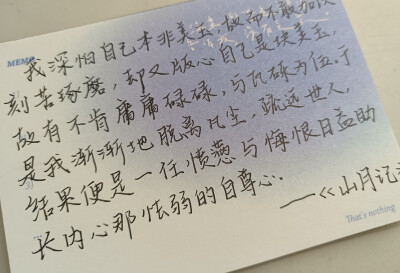 MEMO
我深怕自己本非美玉,故而不敢加以
刻苦琢磨,却又版心自己是块美玉,
故有不肯庸庸碌碌,与瓦砾为伍。于
是我渐渐地脱离凡尘,疏远世人,
结果便是一任愤懑与悔恨日益助
长内心那怯弱的自尊心。
——《山月记》
That's nothing